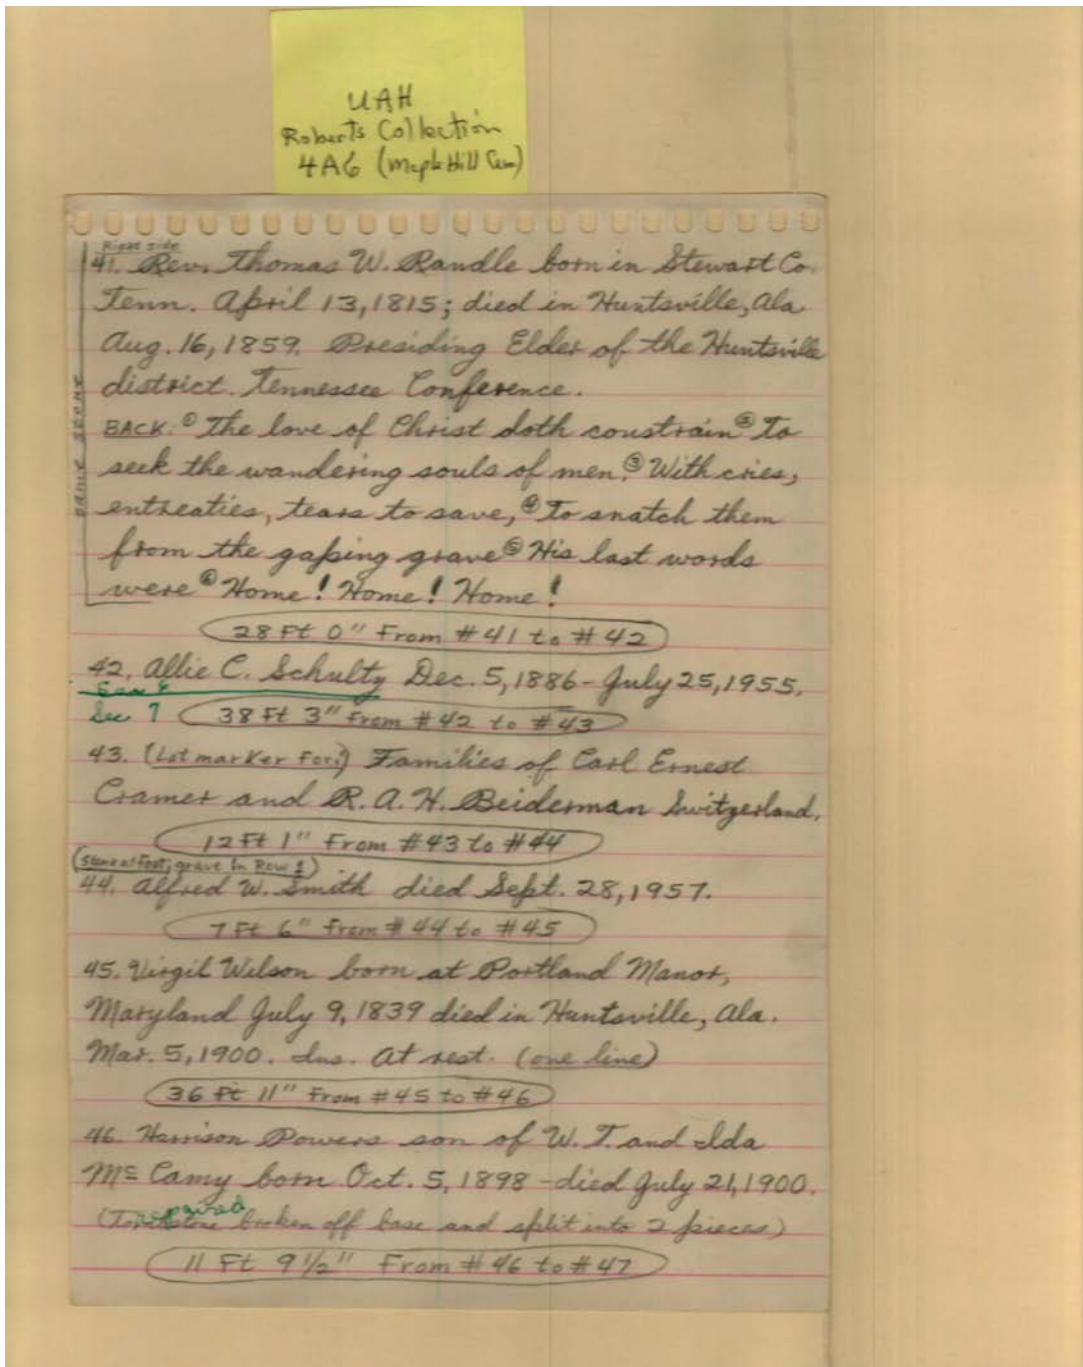 UAH
Roberts Collection
4A6 (Maple Hill Cem)
Right side
41. Rev. Thomas W. Randle born in Stewart Co.
Tenn. April 13, 1815; died in Huntsville, Ala
Aug. 16, 1859. Presiding Elder of the Huntsville
district. Tennessee Conference.
BACK: ① The love of Christ doth constrain ② To
seek the wandering souls of men. ③ With cries,
entreaties, tears to save, ④ To snatch them
from the gaping grave ⑤ His last words
were ⑥ Home! Home! Home!
28 Ft 0" From #41 to #42
42. Allie C. Schultz Dec. 5, 1886 - July 25, 1955.
Sec 7
38 Ft 3" From #42 to #43
43. (Lot marker for:) Families of Carl Ernest
Cramer and R. A. H. Beiderman Switzerland.
12 Ft 1" From #43 to #44
(Stone at foot, grave in Row 1)
44. Alfred W. Smith died Sept. 28, 1957.
7 Ft 6" From #44 to #45
45. Virgil Wilson born at Portland Manor,
Maryland July 9, 1839 died in Huntsville, Ala.
Mar. 5, 1900. Ins. At rest. (one line)
36 Ft 11" From #45 to #46
46. Harrison Powers son of W. T. and Ida
Mc Camy born Oct. 5, 1898 - died July 21, 1900.
repaired
(Tombstone broken off base and split into 2 pieces)
11 Ft 9 1/2" From #46 to #47